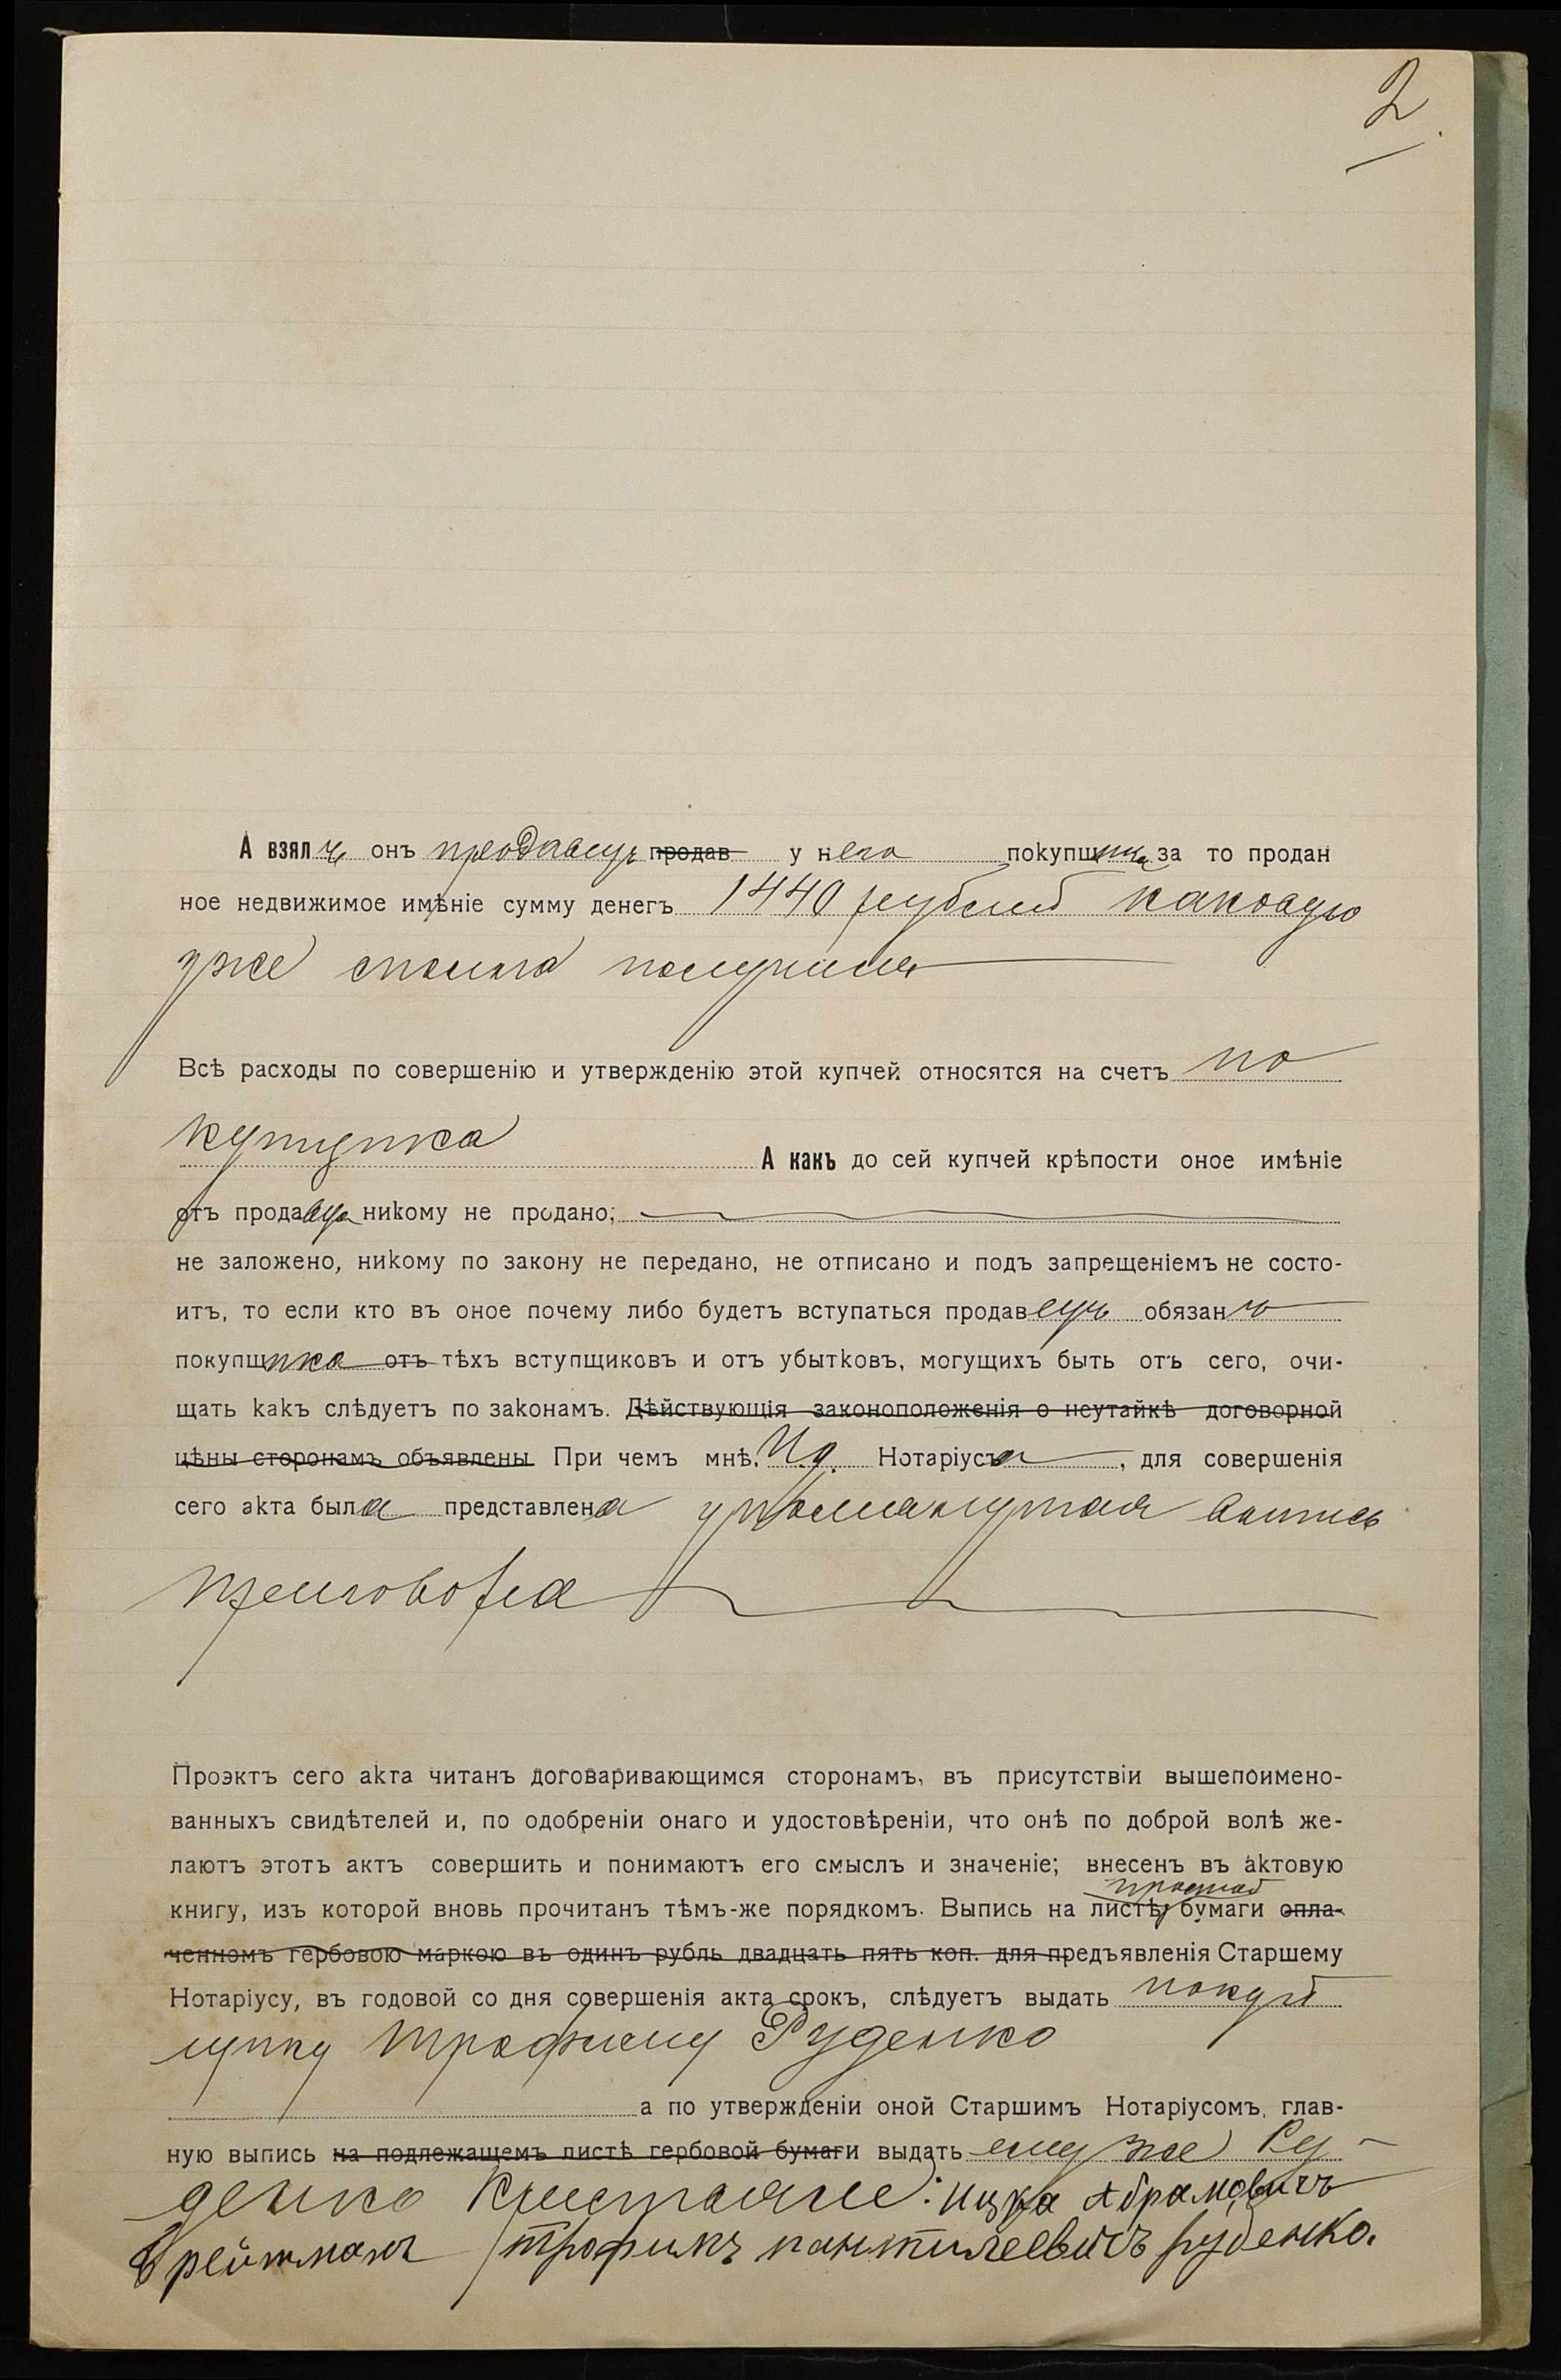 2
А взялъ онъ продавецъ продав у него покупщика за то продан
ное недвижимое имѣніе сумму денегъ 1440 рублей каковую
уже сполна получилъ
Всѣ расходы по совершенію и утвержденію этой купчей относятся на счетъ по
купщика А какъ до сей купчей крѣпости оное имѣніе
отъ продавца никому не продано;
не заложено, никому по закону не передано, не отписано и подъ запрещеніемъ не состо-
итъ, то если кто въ оное почему либо будетъ вступаться продавецъ обязанъ
покупщика отъ тѣхъ вступщиковъ и отъ убытковъ, могущихъ быть отъ сего, очи-
щать какъ слѣдуетъ по законамъ. Дѣйствующія законоположенія о неутайкѣ договорной
цѣны сторонамъ объявлены При чемъ мнѣ, И.д. Нотаріуса, для совершенія
сего акта была представлена упомянутая выпись
договора
Проэктъ сего акта читанъ договаривающимся сторонамъ, въ присутствіи вышепоимено-
ванныхъ свидѣтелей и, по одобреніи онаго и удостовѣреніи, что онѣ по доброй волѣ же-
лаютъ этотъ актъ совершить и понимаютъ его смыслъ и значеніе; внесенъ въ актовую
простой
книгу, изъ которой вновь прочитанъ тѣмъ-же порядкомъ. Выпись на листѣ бумаги опла-
ченномъ гербовою маркою въ одинъ рубль двадцать пять коп. для предъявленія Старшему
Нотаріусу, въ годовой со дня совершенія акта срокъ, слѣдуетъ выдать покуп
щику Трофиму Руденко
а по утвержденіи оной Старшимъ Нотаріусомъ, глав-
ную выпись на подлежащемъ листѣ гербовой бумаги выдать ему же Ру-
денко Крестьяне: Ицка Абрамовичъ
Брейтманъ Трофимъ пантилеевичъ руденко.